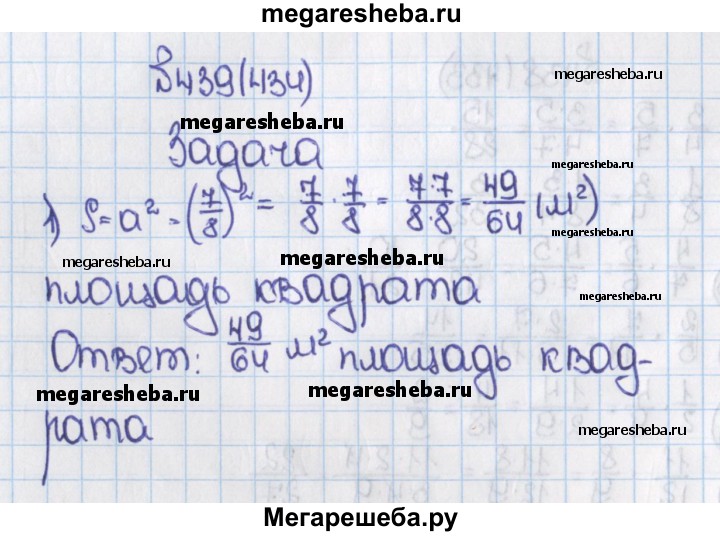 megaresheba.ru
№439(434)
megaresheba.ru
megaresheba.ru
Задача
1) S = a² = (7/8)² = 7/8 · 7/8 = 7·7/8·8 = 49/64 (м²)
megaresheba.ru
megaresheba.ru
megaresheba.ru
megaresheba.ru
площадь квадрата
megaresheba.ru
Ответ: 49/64 м² площадь квад-
megaresheba.ru
megaresheba.ru
рата
megaresheba.ru
Мегарешеба.ру